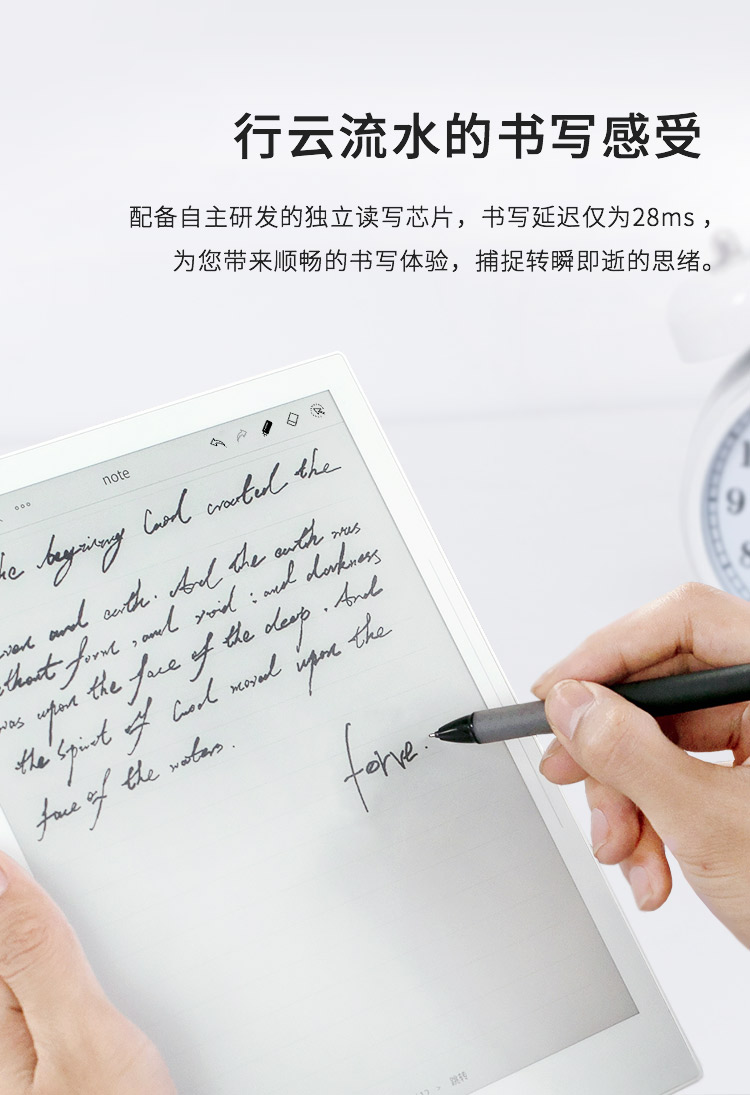 行云流水的书写感受
配备自主研发的独立读写芯片，书写延迟仅为28ms，
为您带来顺畅的书写体验，捕捉转瞬即逝的思绪。
note
the begining God created the
and earth. And the earth was
without form, and void; and darkness
was upon the face of the deep. And
the Spirit of God moved upon the
face of the waters.
forve.
9
8
跳转